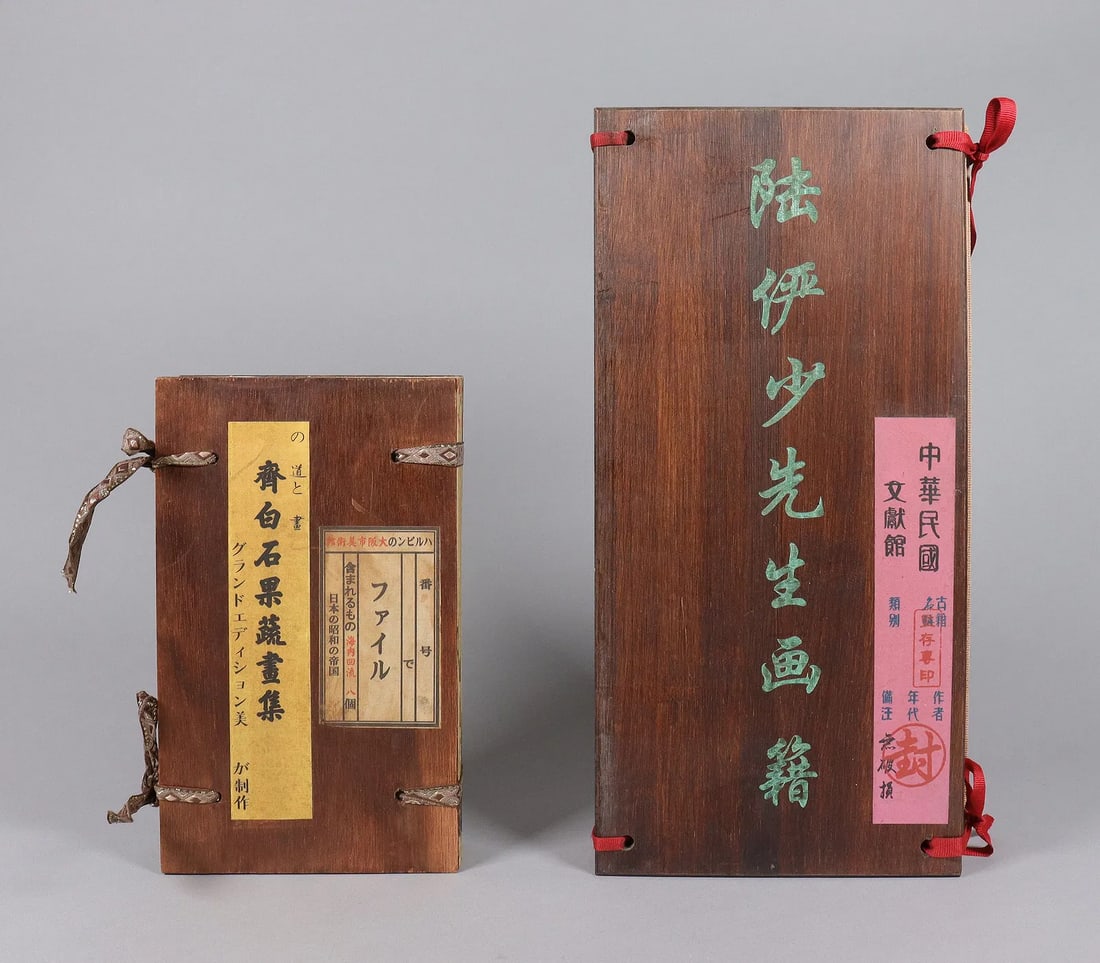 の 道と 畫
齊白石果蔬畫集
グランドエディション美 が制作
ハルビンの大阪市美術館
番 号
で
ファイル
含まれるもの 海内田流 八個
日本の昭和の帝国
陸伊少先生画籍
中華民國
文獻館
古籍
類別
存專印
作者
年代
備注
無破損
封